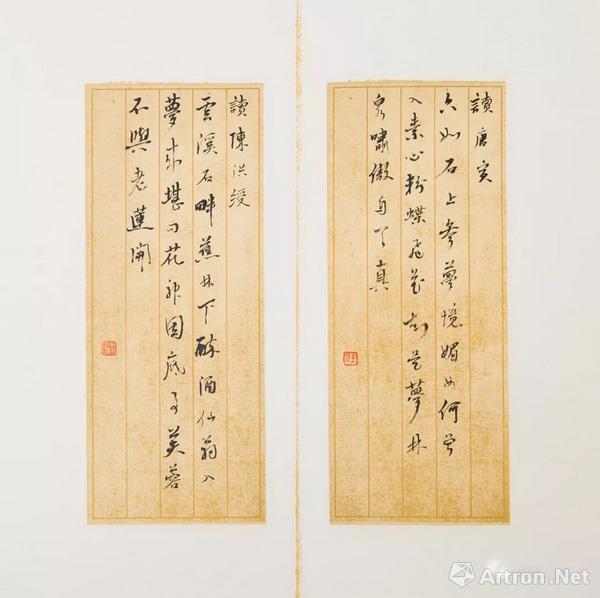 讀唐寅
六如石上參夢境媚何曾
入素心粉蝶飛花是夢林
泉嘯傲自天真
讀陳洪綬
雲溪石畔蕉林下醉酒仙翁入
夢來堪問花神因底事芙蓉
不與老蓮開
Artron.Net